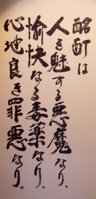 酩酊は
人を魅する悪魔なり、
愉快なる毒薬なり、
心地良き罪悪なり。